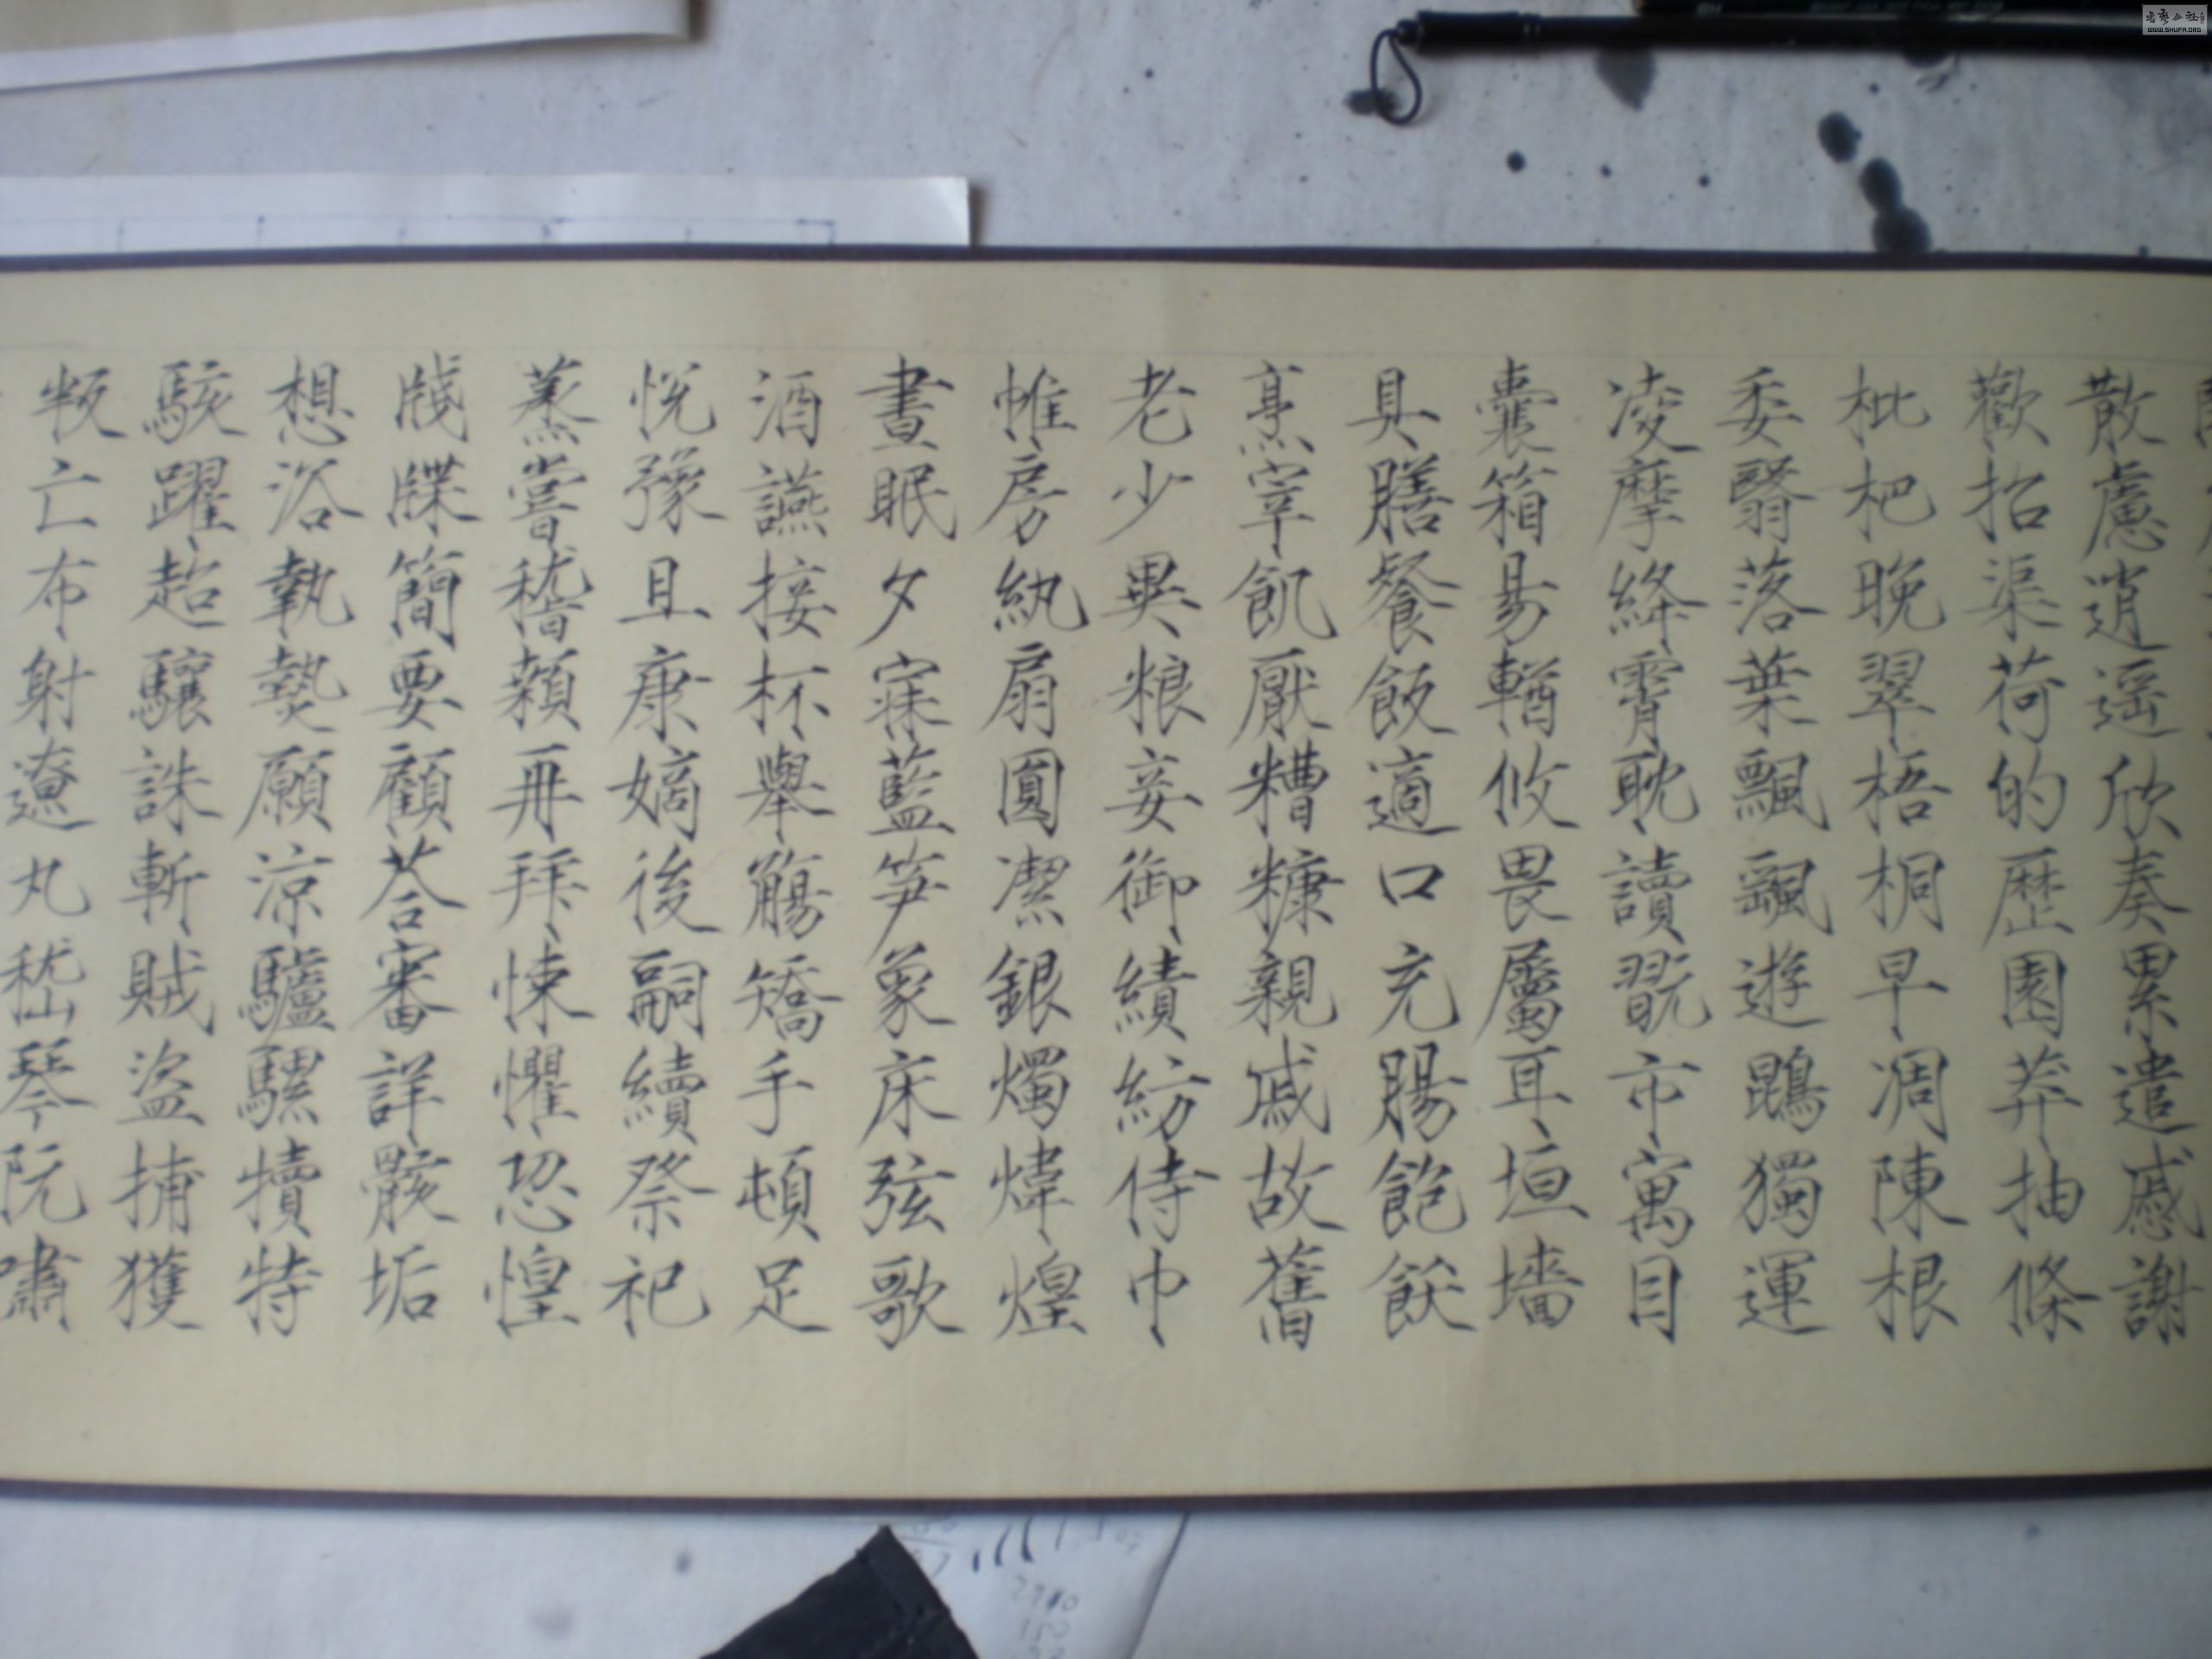 散慮逍遥欣奏累遣慼謝
歡招渠荷的歷園莽抽條
枇杷晚翠梧桐早凋陳根
委翳落葉飄颻遊鵾獨運
凌摩絳霄耽讀翫市寓目
囊箱易輶攸畏屬耳垣墻
具膳餐飯適口充腸飽飫
烹宰飢厭糟糠親戚故舊
老少異粮妾御績紡侍巾
帷房紈扇圓潔銀燭煒煌
晝眠夕寐藍笋象床弦歌
酒讌接杯舉觴矯手頓足
悦豫且康嫡後嗣續祭祀
蒸嘗稽顙再拜悚懼恐惶
牋牒簡要顧荅審詳骸垢
想浴執熱願凉驢騾犢特
駭躍超驤誅斬賊盜捕獲
叛亡布射遼丸嵇琴阮嘯
WWW.SHUFA.ORG